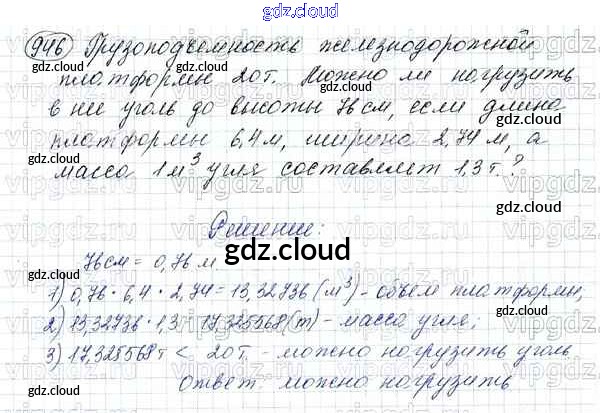 gdz.cloud
946 Грузоподъемность железнодорожной
платформы 20т. Можно ли нагрузить
в нее уголь до высоты 76 см, если длина
платформы 6,4 м, ширина 2,74 м, а
масса 1 м³ угля составляет 1,3 т.?
Решение:
76 см = 0,76 м.
gdz.cloud
1) 0,76 · 6,4 · 2,74 = 13,32736 (м³) - объем платформы;
2) 13,32736 · 1,3 = 17,325568 (т) - масса угля;
3) 17,325568 т < 20т. - можно нагрузить уголь
Ответ: можно нагрузить
gdz.cloud